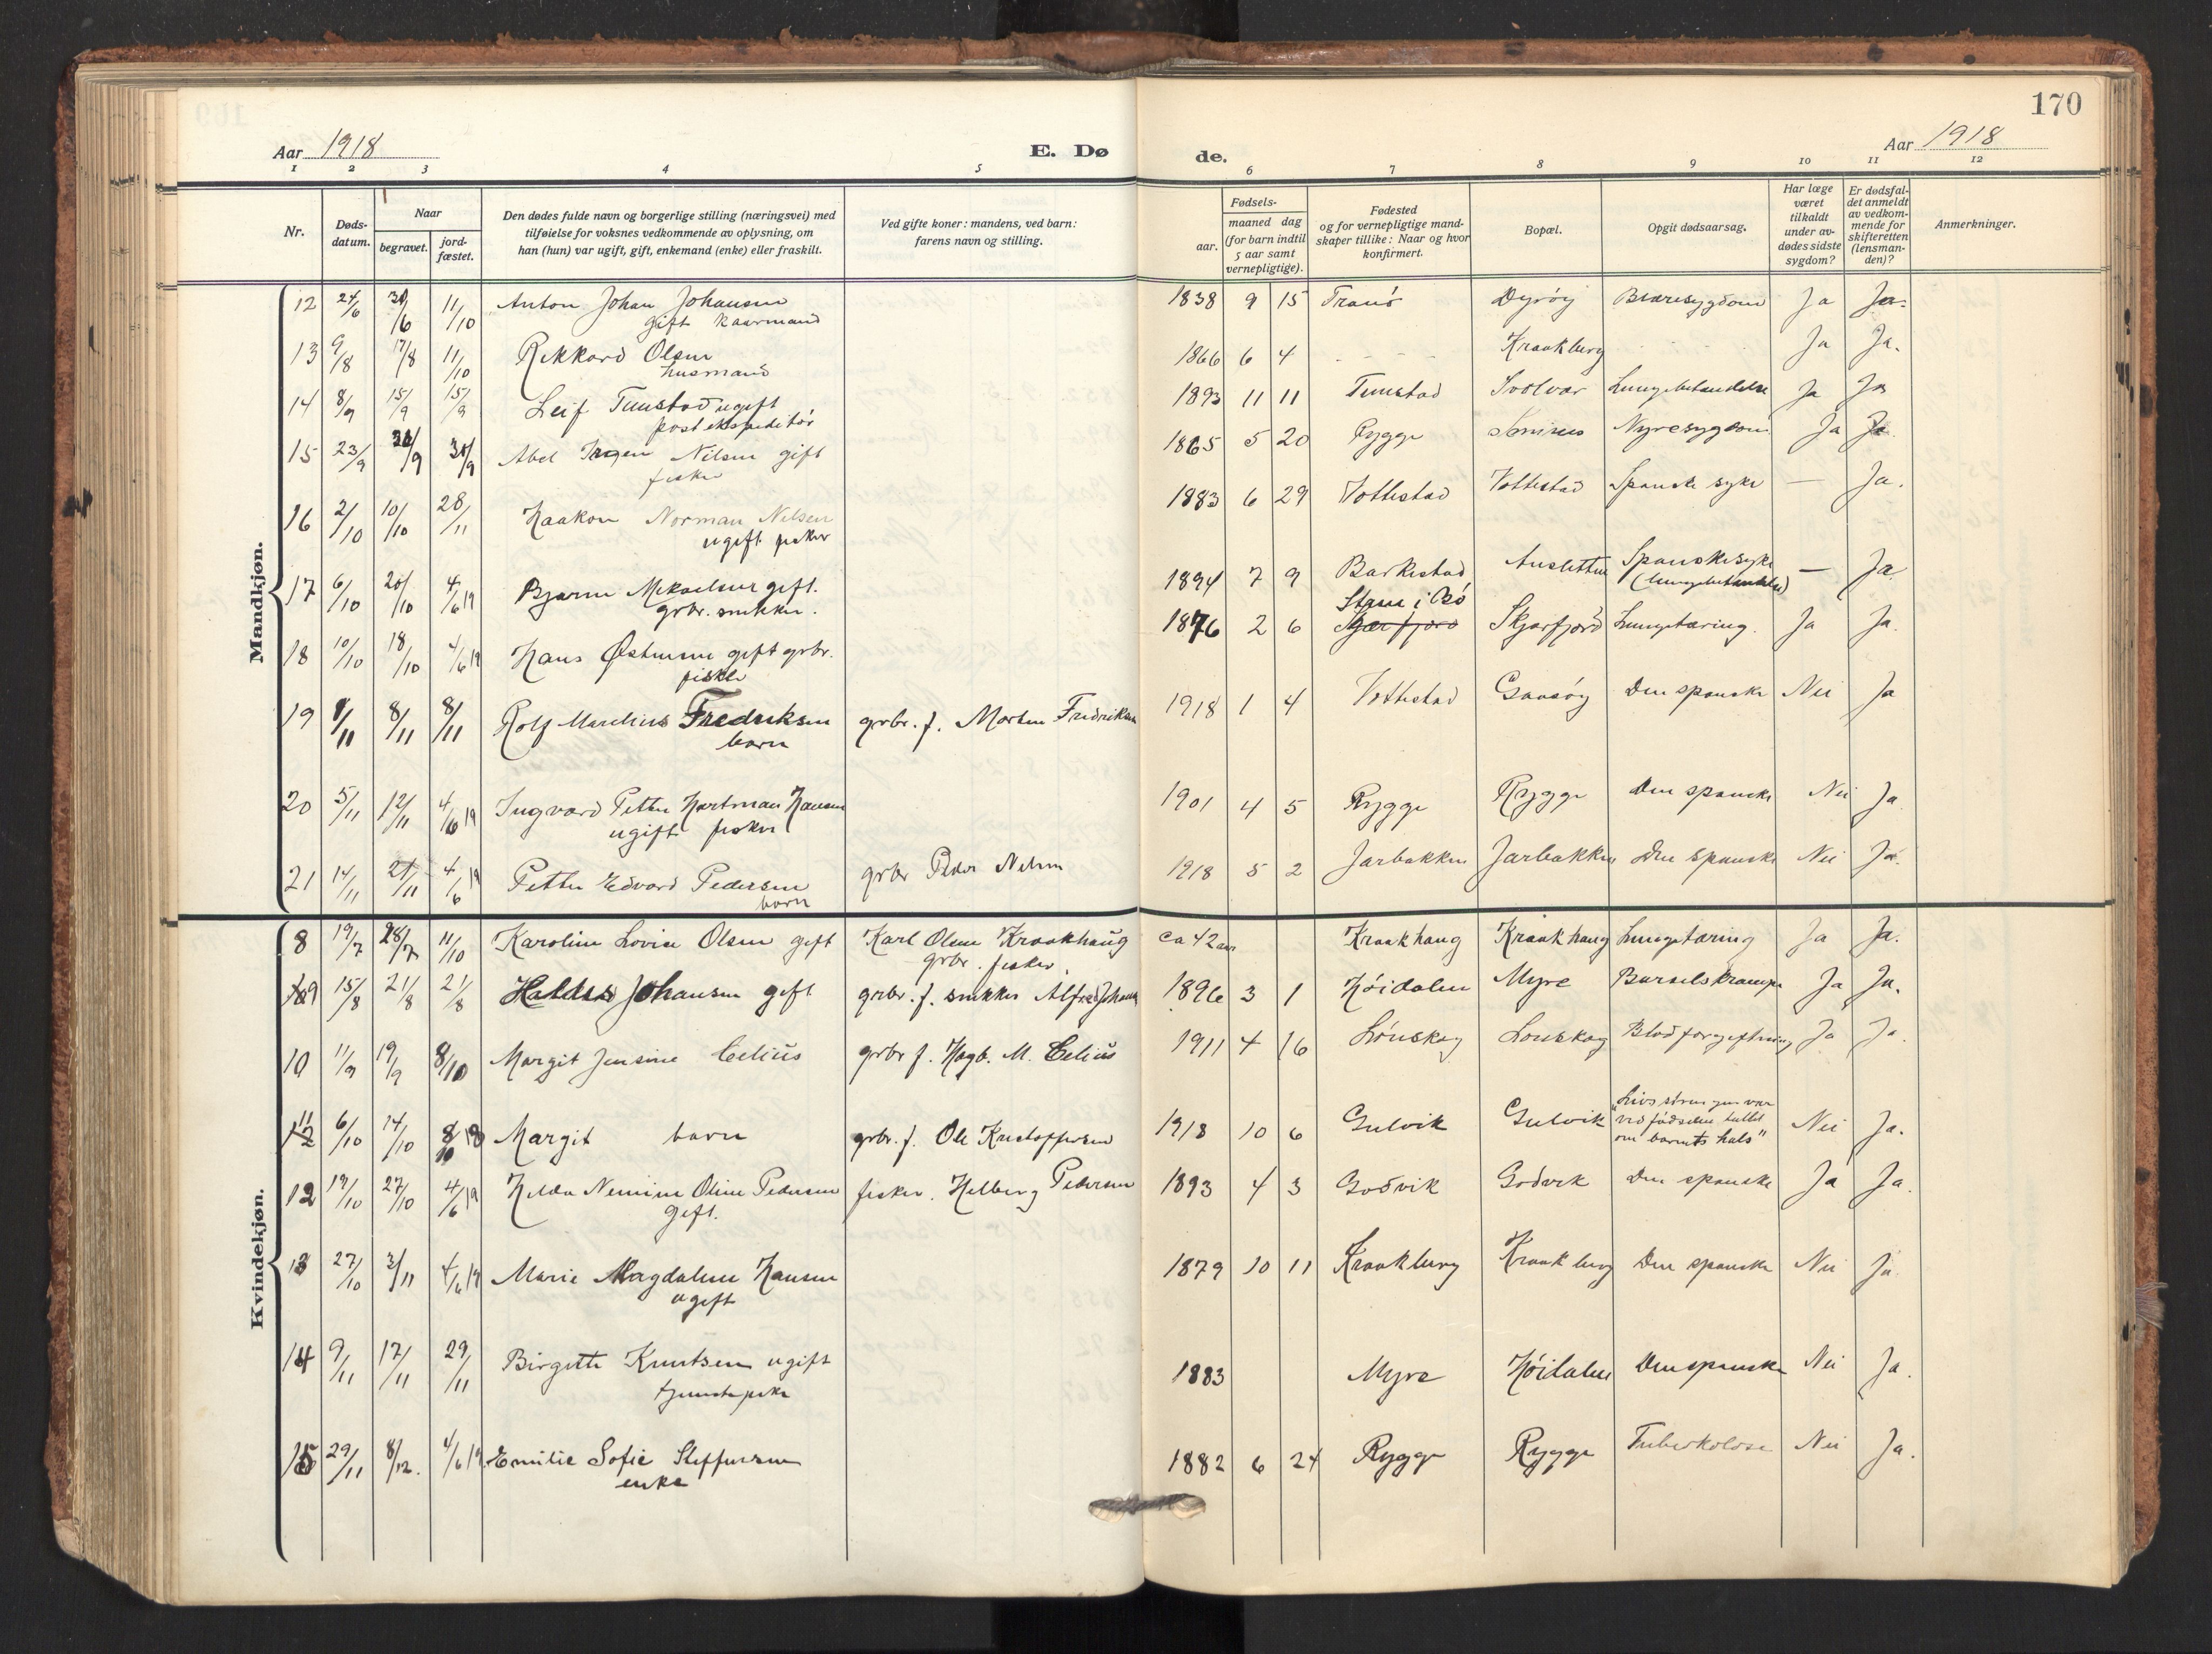 170
Aar 1918
E. Dø
de.
Aar 1918
1 2 3 4 5 6 7 8 9 10 11 12
Nr.
Døds-
datum.
Naar
begravet.
jord-
fæstet.
Den dødes fulde navn og borgerlige stilling (næringsvei) med
tilføielse for voksnes vedkommende av oplysning, om
han (hun) var ugift, gift, enkemand (enke) eller fraskilt.
Ved gifte koner: mandens, ved barn:
farens navn og stilling.
Fødsels-
aar.
maaned dag
(for barn indtil
5 aar samt
vernepligtige).
Fødested
og for vernepligtige mand-
skaper tillike: Naar og hvor
konfirmert.
Bopæl.
Opgit dødsaarsag.
Har læge
været
tilkaldt
under av-
dødes sidste
sygdom?
Er dødsfal-
det anmeldt
av vedkom-
mende for
skifteretten
(lensman-
den)?
Anmerkninger.
Mandkjøn.
12 24/6 30/6 11/10 Anton Johan Johansen 1838 9 15 Tranö Dyröy Ja Ja.
gift kaarmand
13 9/8 17/8 11/10 Rikkard Olsen 1866 6 4 - - - - Kraakberg Ja Ja.
husmand
14 8/9 15/9 15/9 Leif Tunstad ugift 1893 11 11 Tunstad Svolvær Lungebetændelse Ja Ja
postekspeditör
15 23/9 30/9 30/9 Abel Nilsen gift 1865 5 20 Rygge Nyresygdom Ja Ja.
fisker
16 2/10 10/10 28/11 Haakon Norman Nilsen 1883 6 29 Vottestad Vottestad Spanske syke — Ja.
ugift fisker
17 6/10 20/10 4/6 19 Bjarne Mikaelsen gift. 1894 7 9 Barkestad Spanskesyke — Ja
grbr. snikker. (lungebetændelse)
Stene i Bö
18 10/10 18/10 4/6 19 Hans Østensen gift grbr. 1876 2 6 Skjærfjord Skjærfjord Lungetæring. Ja Ja.
fisker
19 1/11 8/11 8/11 Rolf Marelius Fredriksen grbr. f. Morten Fredriksen 1918 1 4 Vottestad Gaasöy Den spanske Nei Ja
barn
20 5/11 12/11 4/6 19 Ingvard Petter Hartman Hansen 1901 4 5 Rygge Rygge Den spanske Nei Ja
ugift fisker
21 14/11 21/11 4/6 19 Petter Edvard Pedersen grbr Peder Nilsen 1918 5 2 Jarbakken Jarbakken Den spanske Nei Ja.
barn
Kvindekjøn.
8 19/7 28/7 11/10 Karoline Lovise Olsen gift Karl Olsen Kraakhaug ca 42 aar Kraakhaug Kraakhaug Lungetæring Ja Ja.
grbr. fisker.
9 15/8 21/8 21/8 Johansen gift grbr. f. snikker Alfred Johansen 1896 3 1 Höidalen Myre Barselskrampe Ja Ja.
10 11/9 19/9 8/10 Margit Jensine Celius grbr f. Hagb. M. Celius 1911 4 16 Lönskog Lonskog Blodforgiftning Ja Ja.
11 6/10 14/10 8/10 18 Margit barn grbr. f. Ole Kristoffersen 1918 10 6 Gulvik Gulvik "Livsstrengen var
ved födselen tullet
om barnets hals" Nei Ja.
12 19/10 27/10 4/6 19 Hilda Nemine Oline Pedersen fisker. Helberg Pedersen 1893 4 3 Godvik Godvik Den spanske Ja Ja.
gift.
13 27/10 3/11 4/6 19 Marie Magdalene Hansen 1879 10 11 Kraakberg Kraakberg Den spanske Nei Ja.
ugift
14 9/11 17/11 29/11 Birgitte Knutsen ugift 1883 Myre Höidalen Den spanske Nei Ja.
tjenestepike
15 29/11 8/12. 4/6 19 Emilie Sofie Steffensen 1882 6 24 Rygge Rygge Tuberkolose Nei Ja.
enke